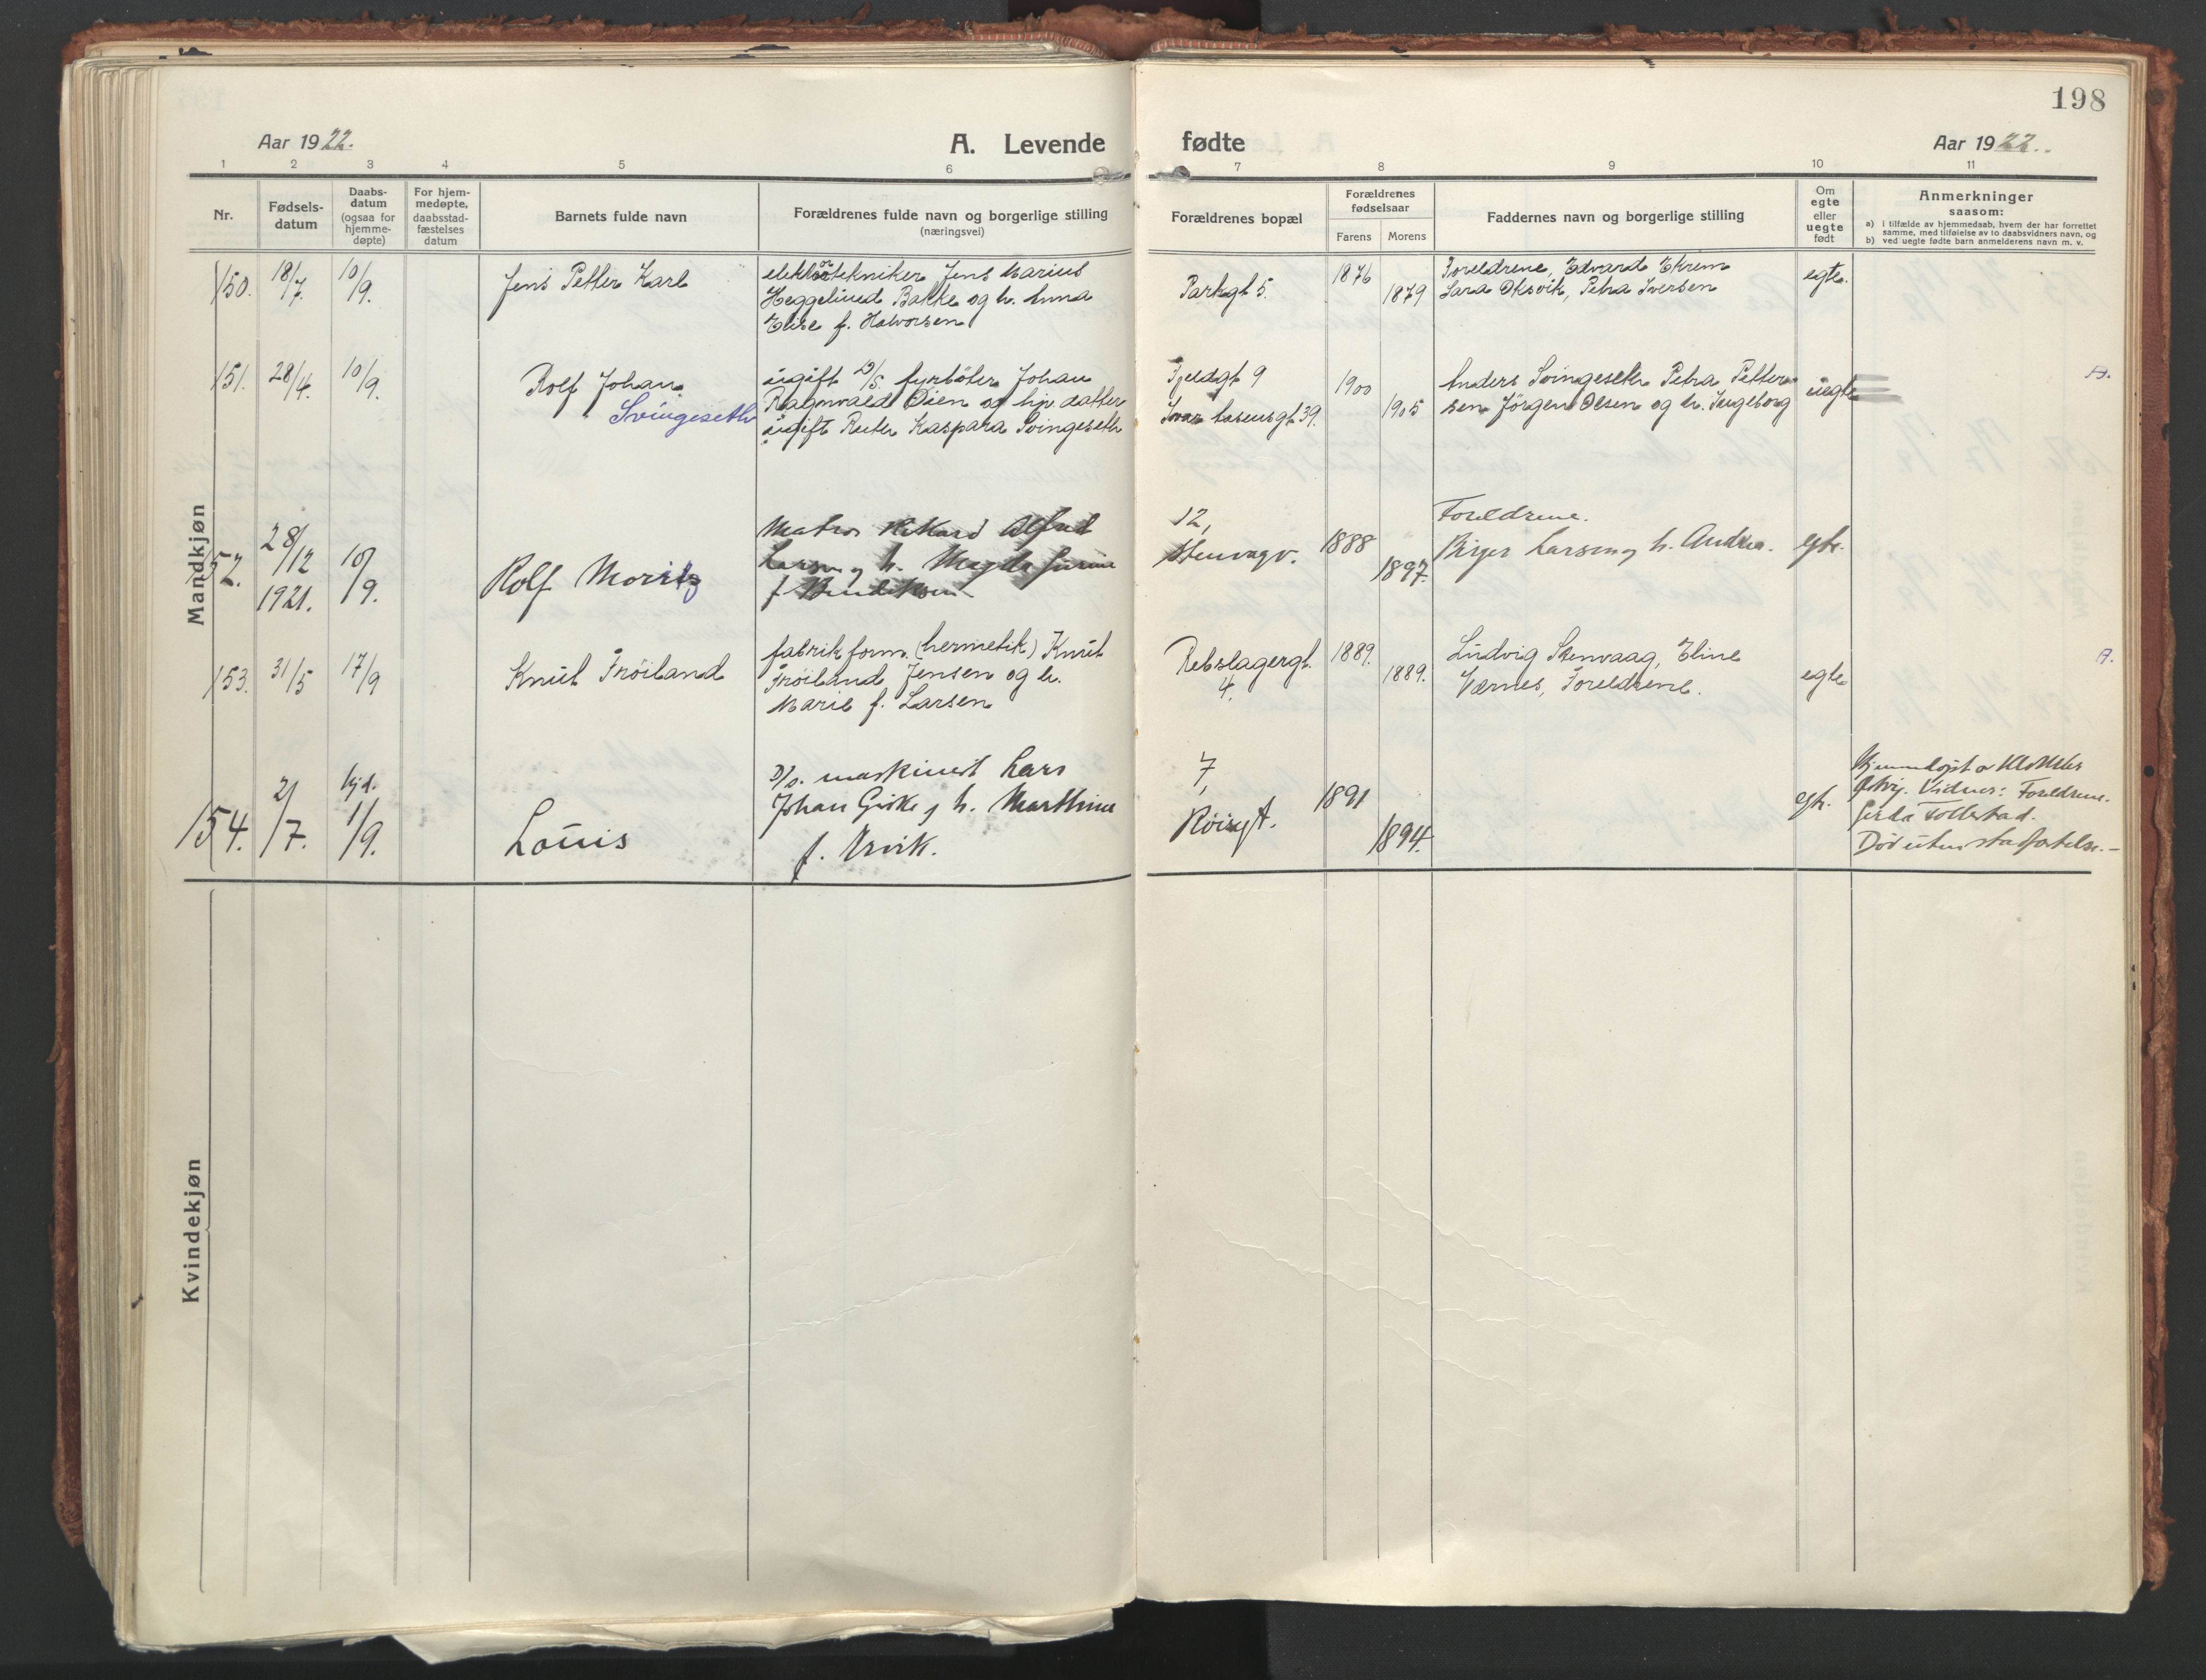 198
Aar 1922.
A. Levende fødte
Aar 1922.
1 2 3 4 5 6 7 8 9 10 11
Nr.
Fødsels-
datum
Daabs-
datum
(ogsaa for
hjemme-
døpte)
For hjem-
medøpte,
daabsstad-
fæstelses
datum
Barnets fulde navn
Forældrenes fulde navn og borgerlige stilling
(næringsvei)
Forældrenes bopæl
Forældrenes
fødselsaar
Farens Morens
Faddernes navn og borgerlige stilling
Om
egte
eller
uegte
født
Anmerkninger
saasom:
a) i tilfælde av hjemmedaab, hvem der har forrettet
samme, med tilføielse av to daabsvidners navn, og
b) ved uegte fødte barn anmelderens navn m. v.
Mandkjøn
150. 18/7. 10/9.
Jens Petter Karl
elektrotekniker Jens Marius
Heggelund Bakke og h. Anna
Elise f. Halvorsen
Parkgt 5.
1876
1879
Foreldrene, Edvard Ekrem
Sara Oksvik, Petra Iversen
egte.
151. 28/4. 10/9.
Rolf Johan
Svingeseth
ugift fyrbøter Johan
Ragnvald Øien og hjv. datter
ugift Ruth Kaspara Svingeseth
Fjeldgt 9
Ivar Aasensgt 39.
1900
1905
Anders Svingeseth Petra Petter-
sen Jörgen Olsen og h. Ingeborg
uegte
A.
152. 28/12 1921. 10/9.
Rolf Moritz
Matros Rikard Alfred
Larsen og h. Magda
f. Bendiksen
12,
Stenvagv.
1888
1897.
Foreldrene.
Birger Larsen og h. Andrea.
egte.
153. 31/5 17/9
Knut Frøiland
fabrikform. (hermetik) Knut
Frøiland Jensen og h.
Marie f. Larsen
Rebslagergt.
4.
1889.
1889.
Ludvig Stenvaag, Eline
Værnes, Foreldrene.
egte
A.
154. 2/7. hjd. 1/9.
Louis
D/s. maskinist Lars
Johan Giske og h. Marthine
f. Ervik.
7,
Røisgt.
1891
1894.
egte.
Hjemmedøpt av
Vidner: Foreldrene.
Gerda Tollestad.
Død uten stadfæstelse. –
Kvindekjøn